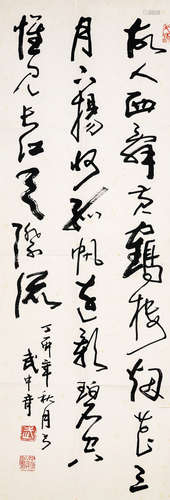 故人西辞黄鶴楼烟花三
月下揚州孤帆遠影碧空
惟见长江天際流
丁卯年秋月书
武中奇